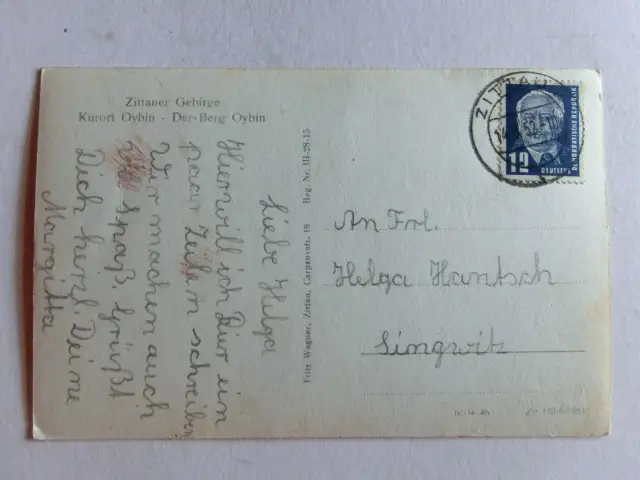 Zittauer Gebirge
Kurort Oybin - Der Berg Oybin
Liebe Helga
Hier will ich Dir ein
paar Zeilen schreiben
Wir machen auch
Spaß. Grüßt
Dich herzl. Deine
Margitta
Fritz Wagner, Zittau, Carpzovstr. 18 Reg. Nr. III-28-15
ZITTAU
12
DEUTSCHE
DEMOKRATISCHE REPUBLIK
An Frl.
Helga Hantsch
Singwitz